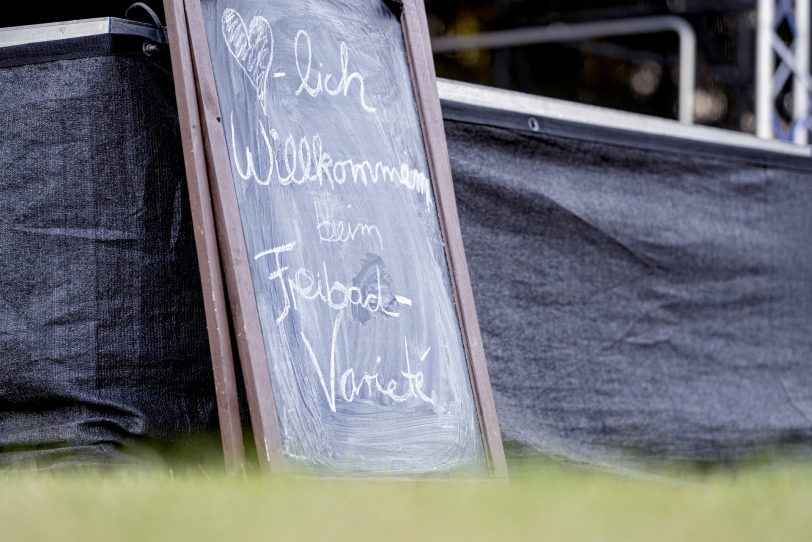 ♥-lich
Willkommen
beim
Freibad-
Varieté